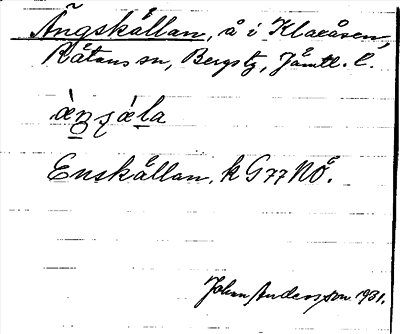 Ängskållan, å i Klaråsen,
Rätans sn, Bergs tg, Jämtl. l.
Enskållan, k G 77 NÖ.
John Andersson 1931.